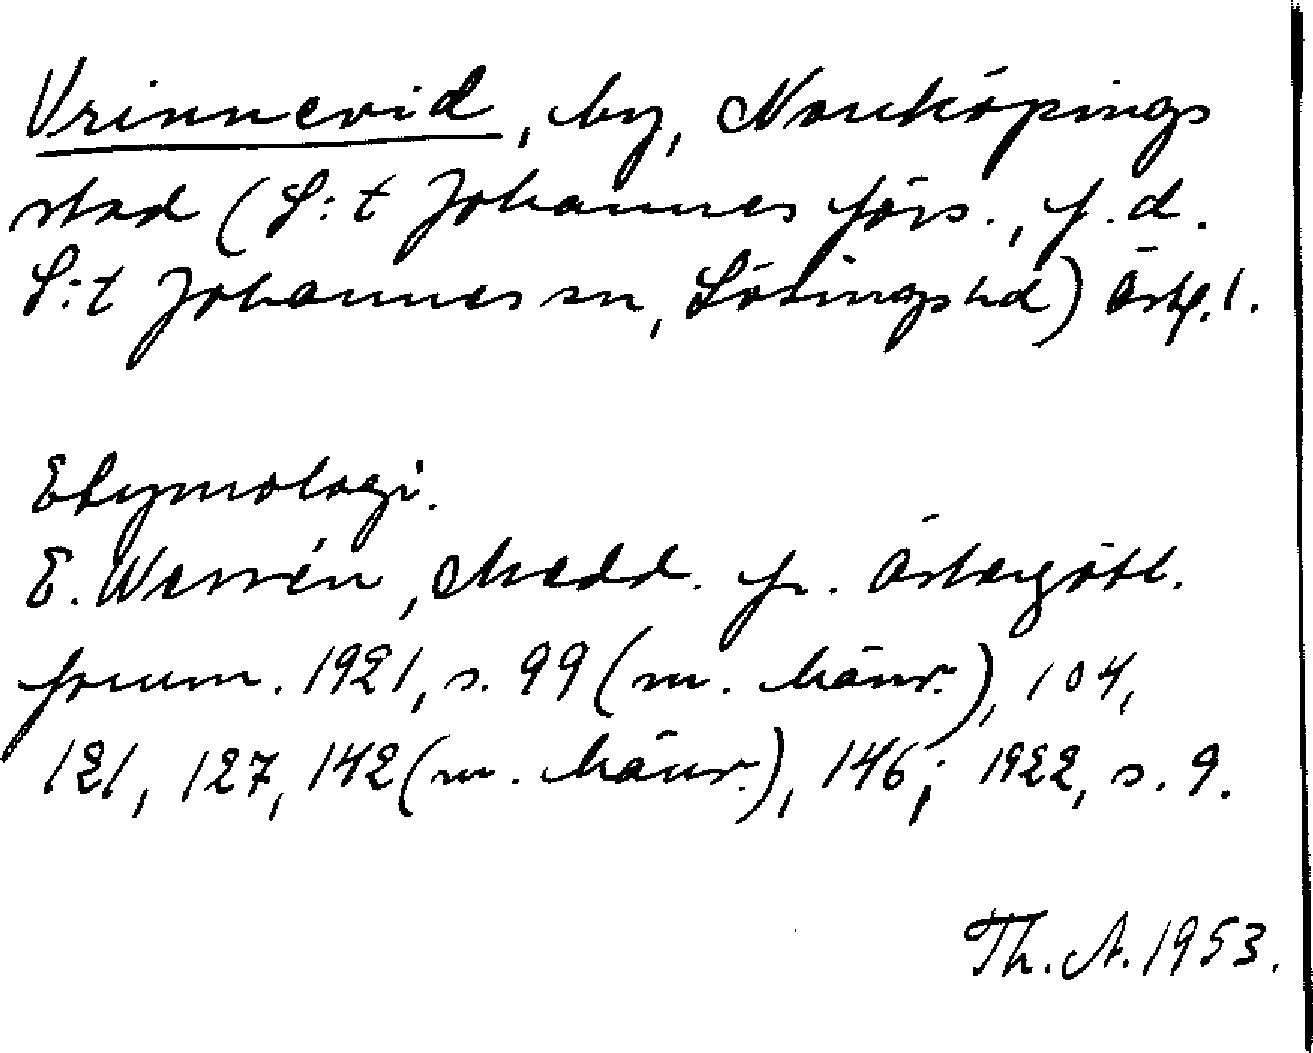 Vrinnevid, by, Norrköpings
stad (S:t Johannes förs., f.d.
S:t Johannes sn, Lösings hd) Östg. l.
Etymologi.
E. Wessén, Medd. fr. Östergötl.
fornm. 1921, s. 99 (m. hänv.), 104,
121, 127, 142 (m. hänv.), 146; 1922, s. 9.
Th. A. 1953.